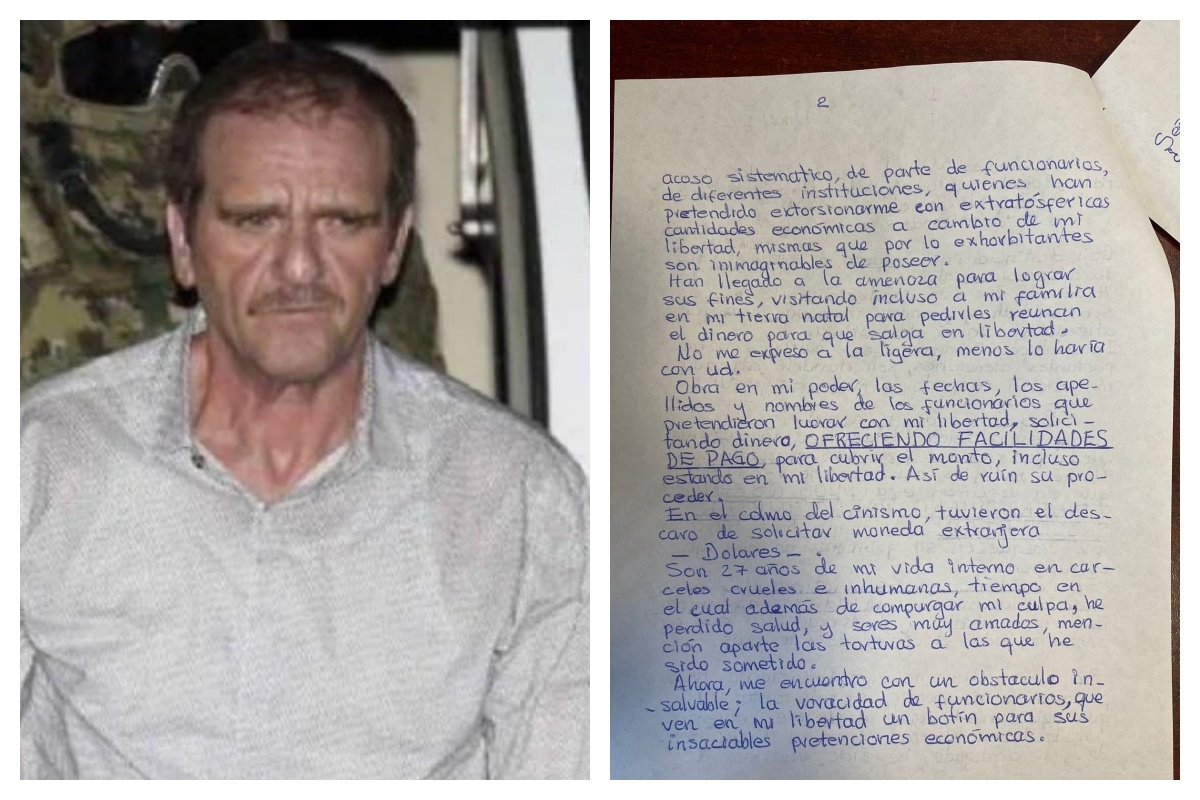 2
acoso sistematico, de parte de funcionarios,
de diferentes instituciones, quienes han
pretendido extorsionarme con extratósfericas
cantidades económicas a cambio de mi
libertad, mismas que por lo exhorbitantes
son inimaginables de poseer.
Han llegado a la amenoza para lograr
sus fines, visitando incluso a mi familia
en mi tierra natal para pedirles reunan
el dinero para que salga en libertad.
No me expreso a la ligera, menos lo haria
con ud.
Obra en mi poder, las fechas, los ape-
llidos y nombres de los funcionarios que
pretendieron lucrar con mi libertad, solici-
tando dinero, OFRECIENDO FACILIDADES
DE PAGO, para cubrir el monto, incluso
estando en mi libertad. Así de ruín su pro-
ceder.
En el colmo del cinismo, tuvieron el des-
caro de solicitar moneda extranjera
— Dolares — .
Son 27 años de mi vida interno en car-
celes crueles e inhumanas, tiempo en
el cual además de compurgar mi culpa, he
perdido salud, y seres muy amados, men-
ción aparte las torturas a las que he
sido sometido.
Ahora, me encuentro con un obstaculo in-
salvable; la voracidad de funcionarios, que
ven en mi libertad un botín para sus
insaciables pretenciones económicas.